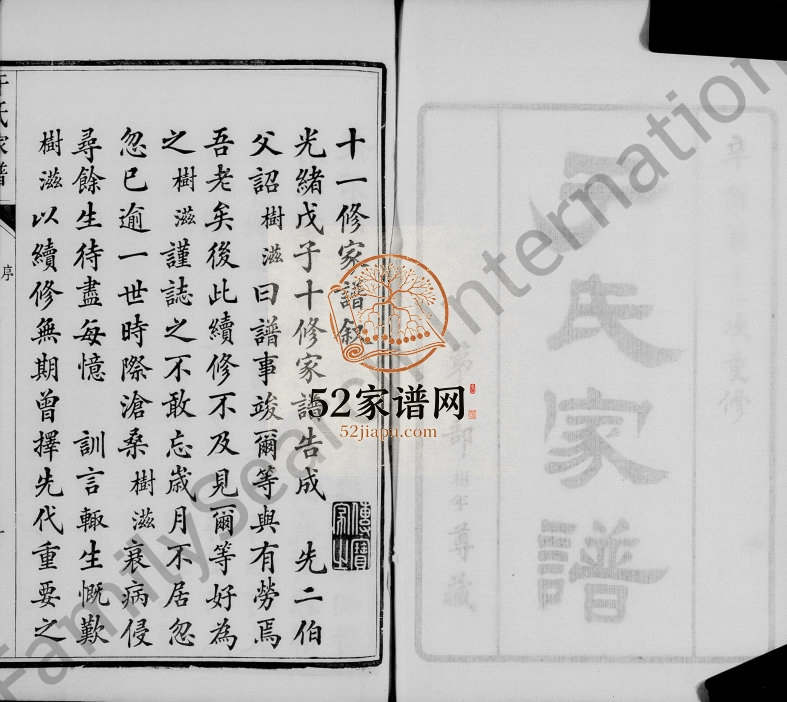 氏家譜
第
部
樹年
尊藏
重修
十一修家譜叙
光緒戊子十修家譜告成　先二伯
父詔樹滋曰譜事竣爾等與有勞焉
吾老矣後此續修不及見爾等好為
之樹滋謹誌之不敢忘歲月不居忽
忽已逾一世時際滄桑樹滋衰病侵
尋餘生待盡每憶　訓言輒生慨歎
樹滋以續修無期曾擇先代重要之
氏家譜
序
52家谱网
52jiapu.com
FamilySearch International